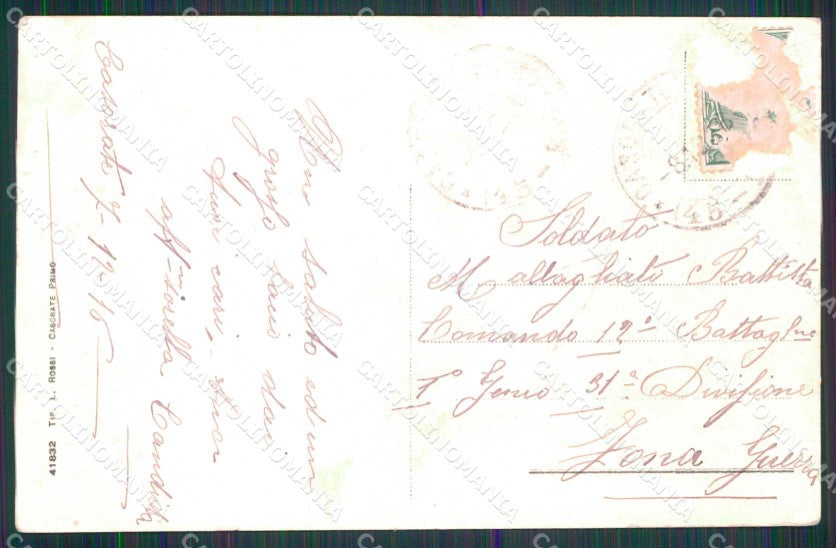 Casorate 7-12-16
Un saluto ed un
grosso bacio dai
tuoi cari, - tua
aff-ma sorella Candida
Soldato
Mallagliati Battista
Comando 12° Battaglne
1° Genio 31a Divisione
Zona Guerra
41832 TIP. L. ROSSI - CASORATE PRIMO
CARTOLINOMANIA